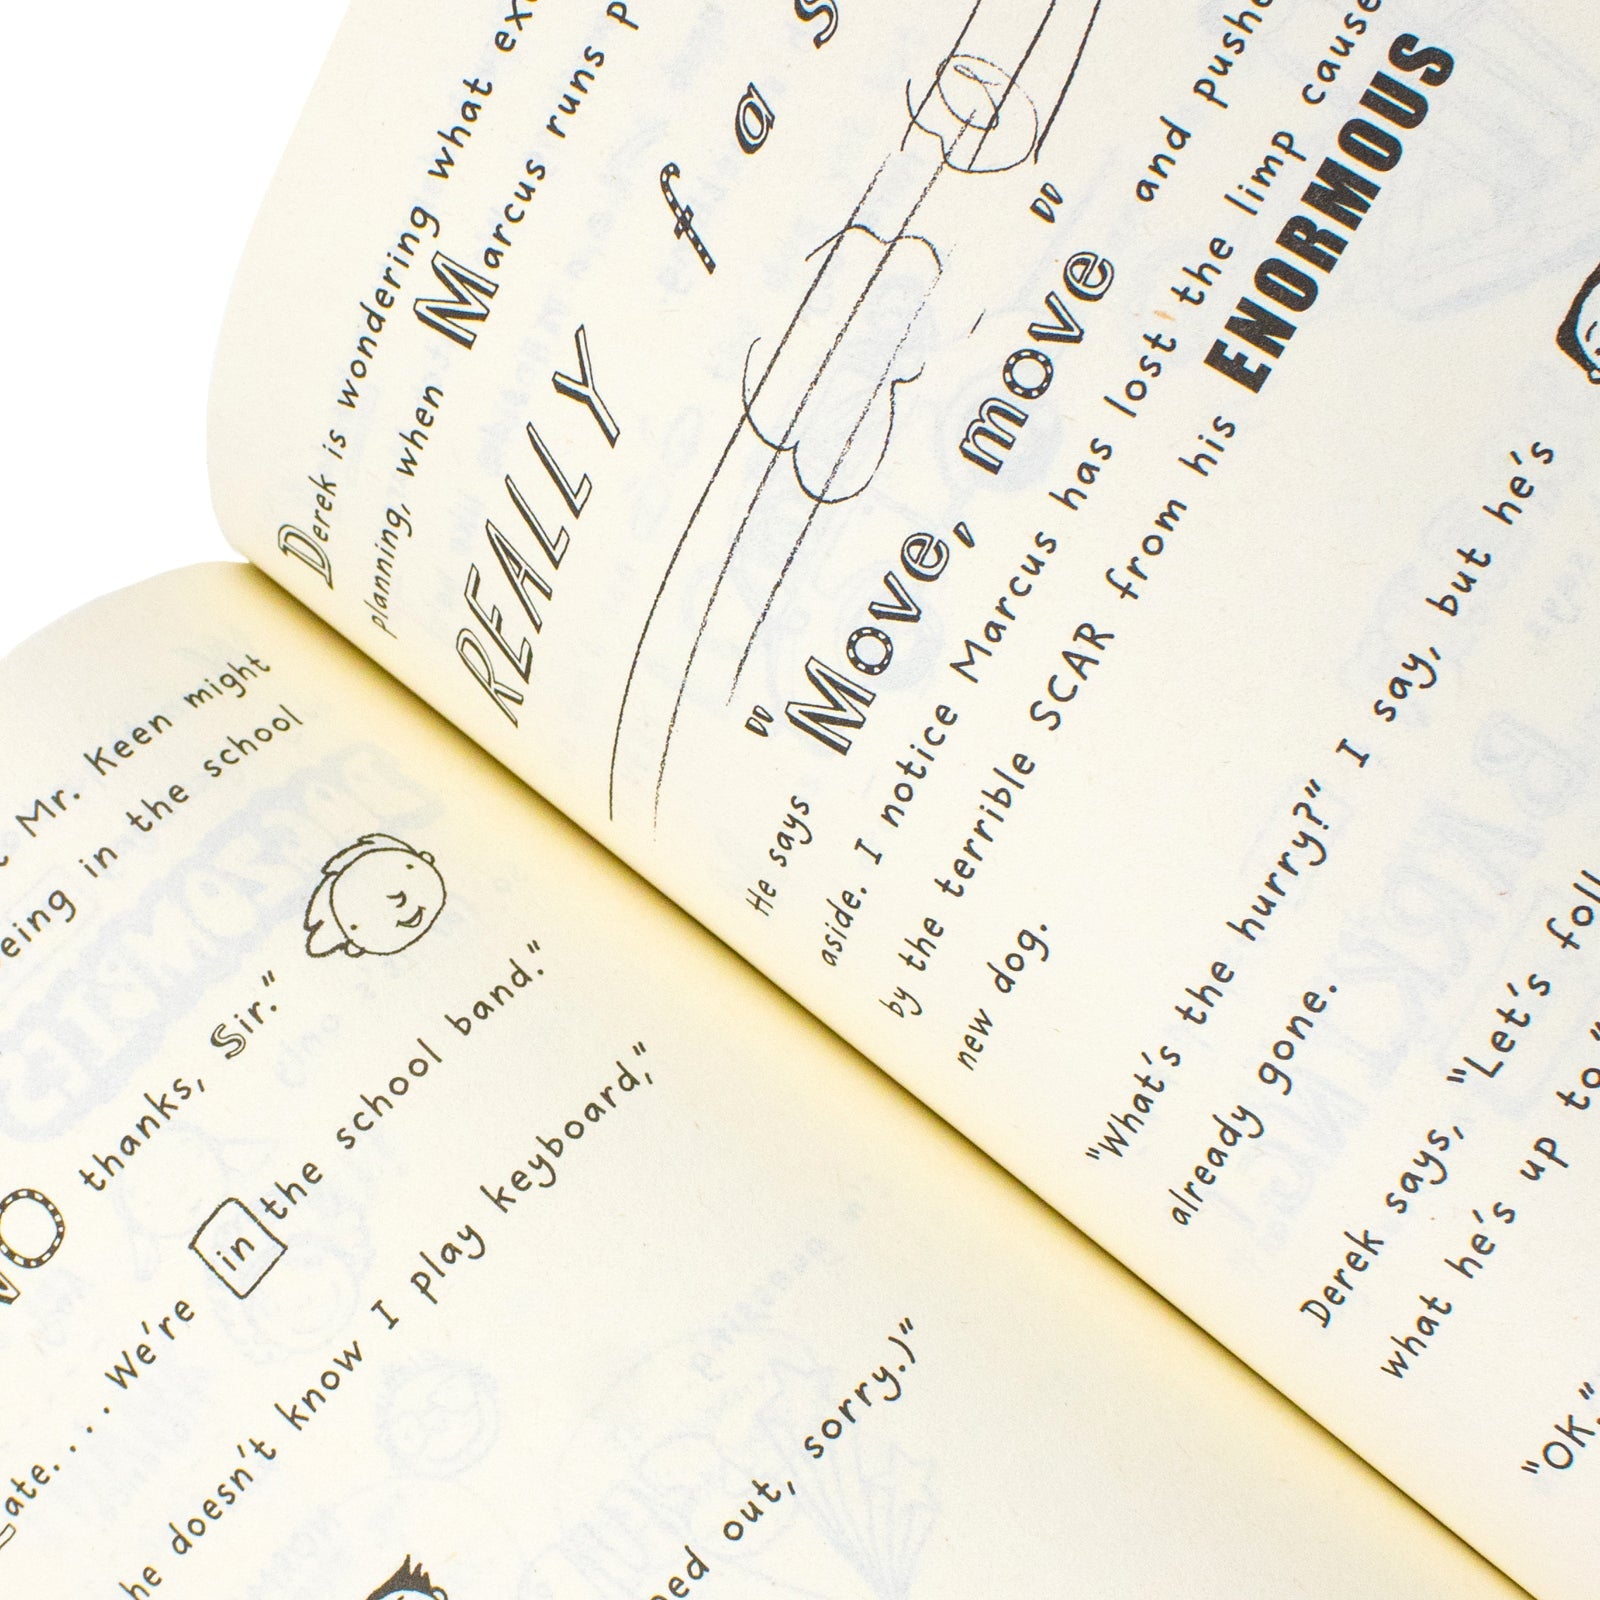 Mr. Keen might
being in the school
thanks, Sir."
We're in the school band."
he doesn't know I play keyboard,"
out, sorry.)"
Derek is wondering what
planning, when Marcus runs
REALLY f a s
He says "Move, move" and
aside. I notice Marcus has lost the limp
by the terrible SCAR from his ENORMOUS
new dog.
"What's the hurry?" I say, but he's
already gone.
Derek says, "Let's
what he's up to."
"OK."